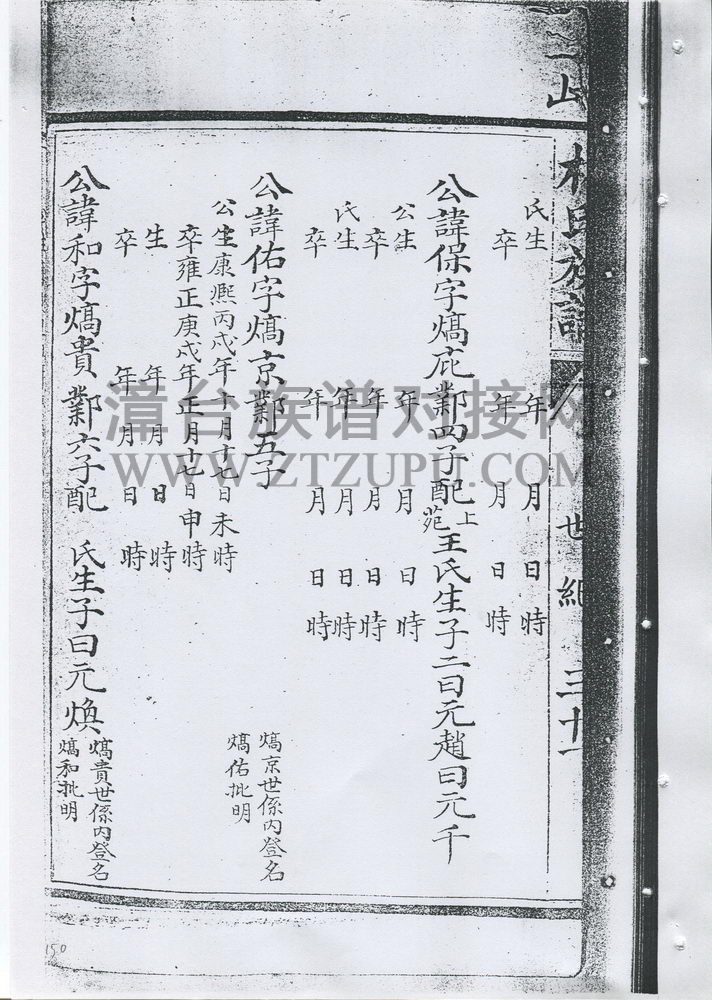 氏族譜
世紀
三十一
氏生 年 月 日 時
卒 年 月 日 時
公諱保字熇庇鄴四子配上苑王氏生子二曰元趙曰元千
公生 年 月 日 時
卒 年 月 日 時
氏生 年 月 日 時
卒 年 月 日 時
公諱佑字熇京鄴五子
熇京世係内登名
熇佑批明
公生康熙丙戌年十月十七日未時
卒雍正庚戌年正月十七日申時
公諱和字熇貴鄴六子配 氏生子曰元煥
熇貴世係内登名
熇和批明
生 年 月 日 時
卒 年 月 日 時
漳台族谱对接网
WWW.ZTZUPU.COM
150